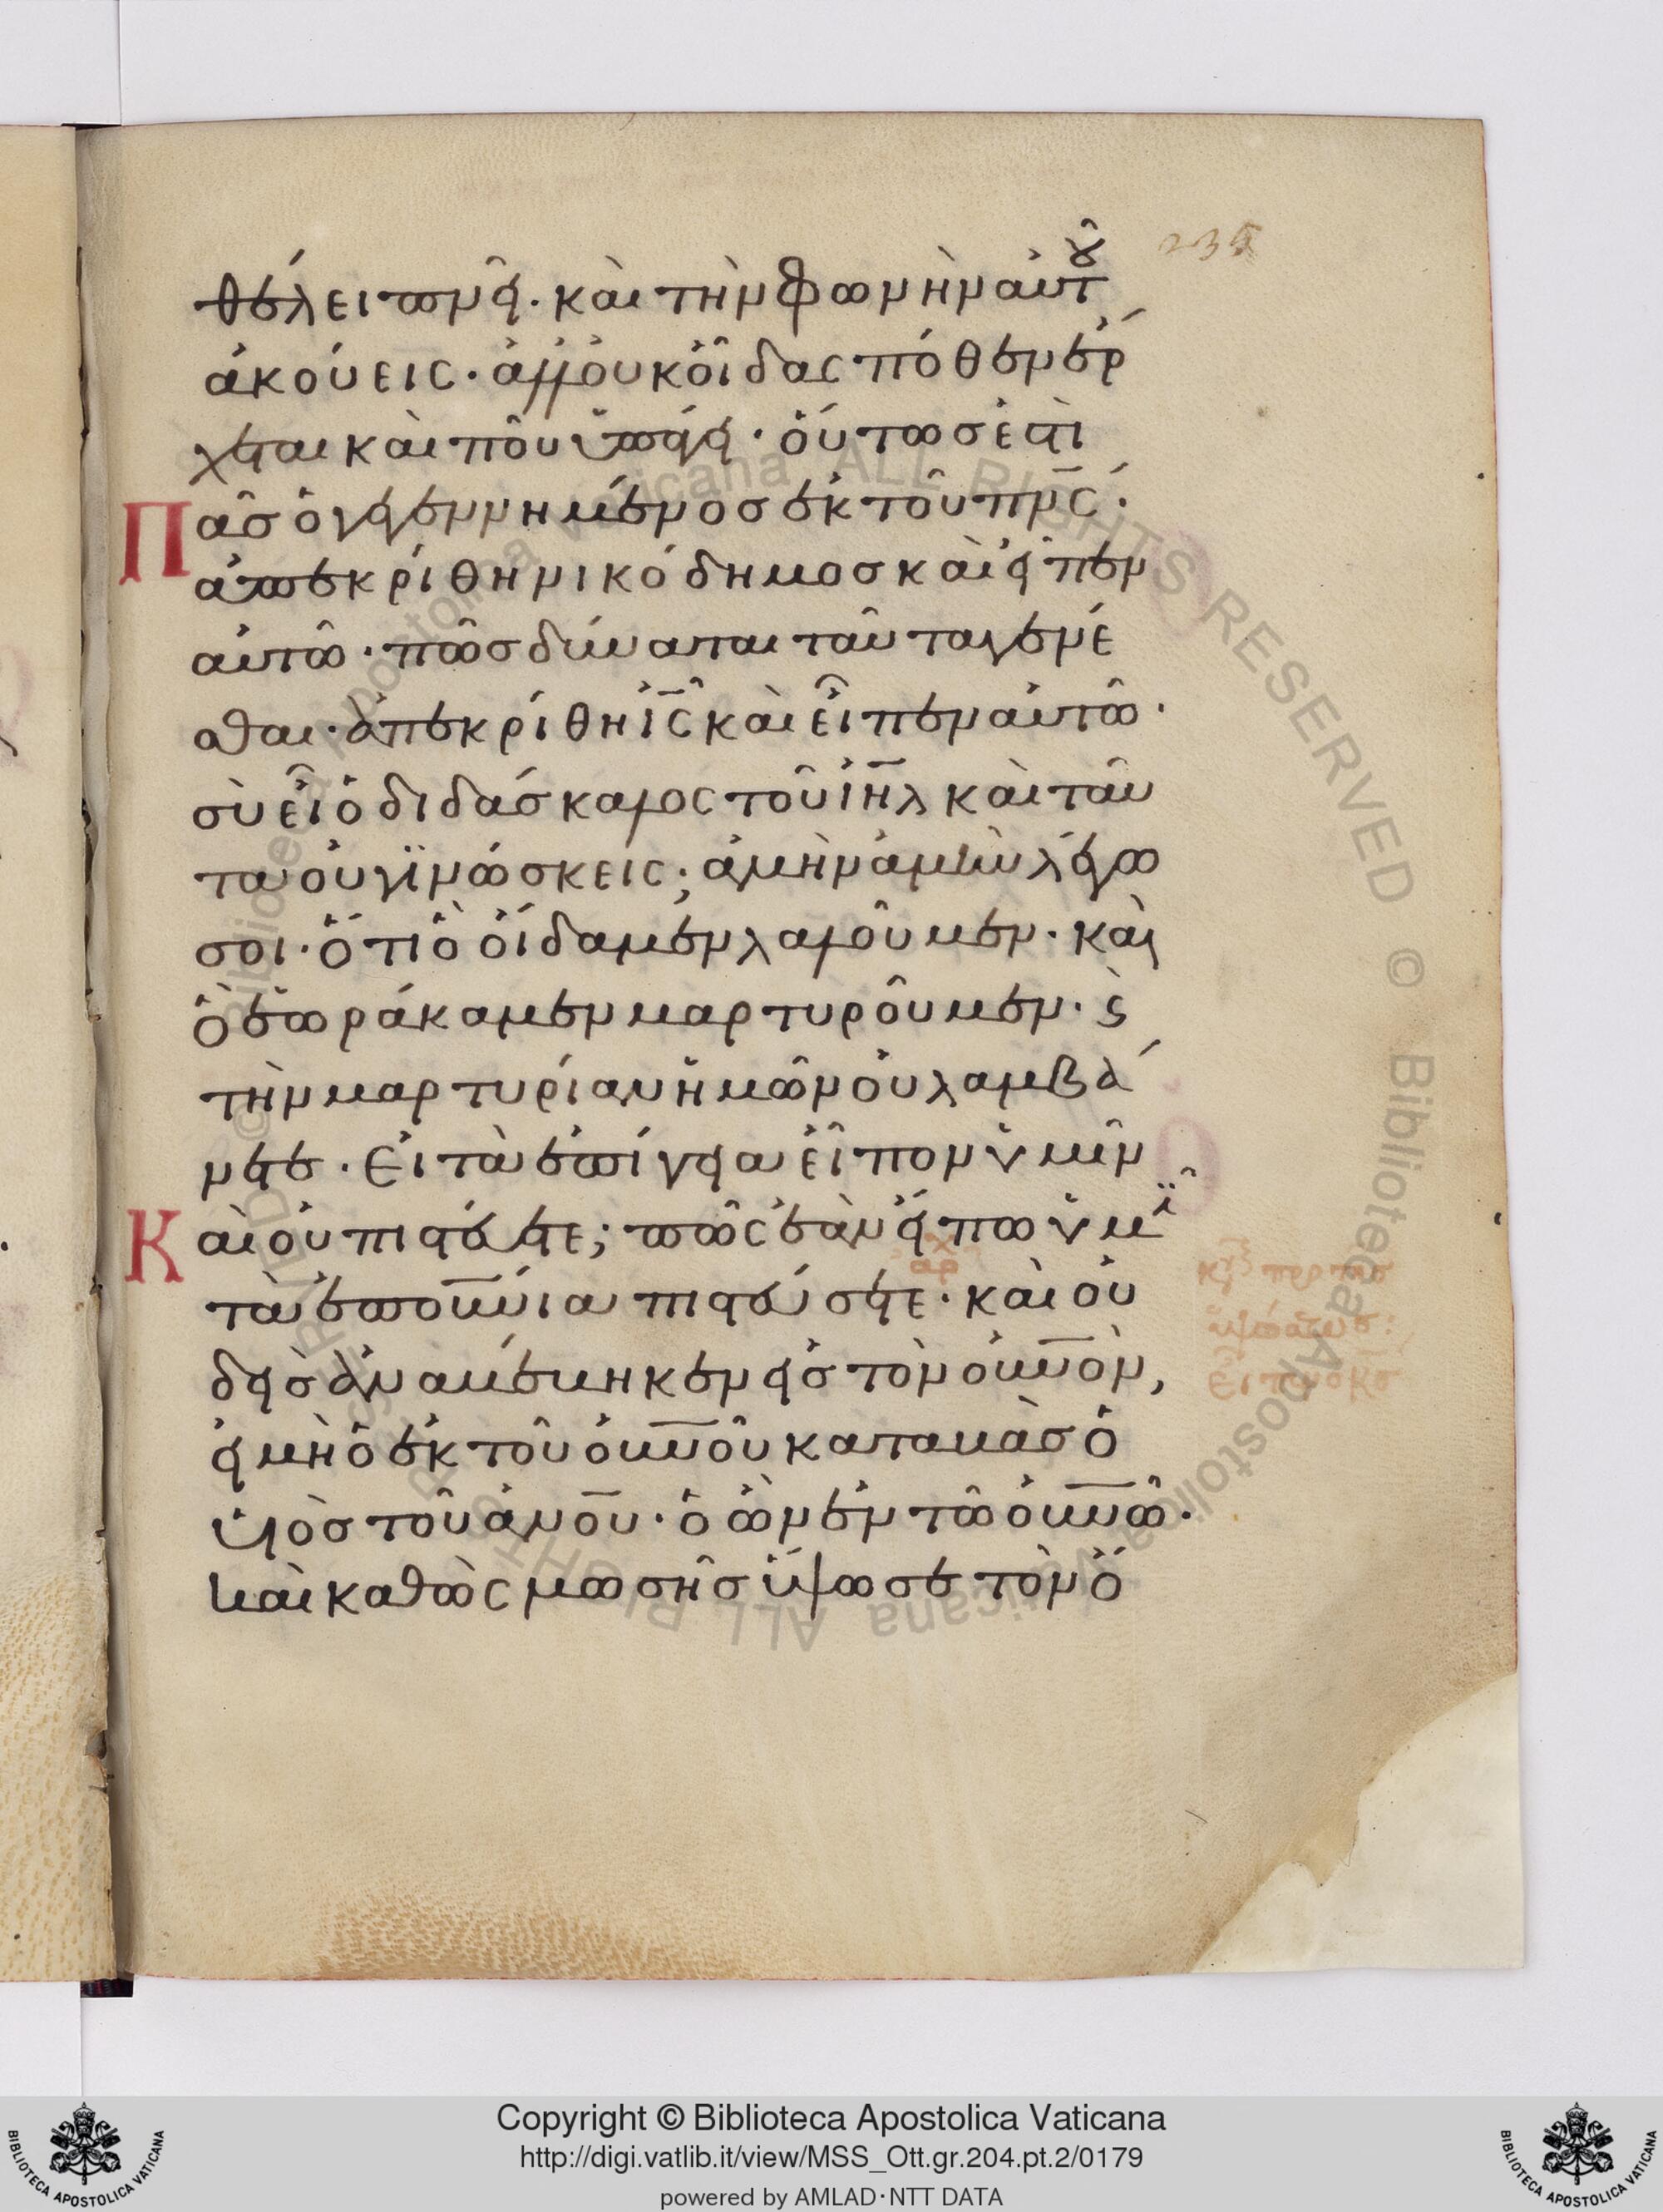 235
θέλει πνεῖ· καὶ τὴν φωνὴν αὐτοῦ
ἀκούεις· ἀλλ' οὐκ οἶδας πόθεν ἔρ
χεται καὶ ποῦ ὑπάγει· οὕτως ἐστὶ
Πᾶσ ὁ γεγεννημένοσ ἐκ τοῦ πν̅ς·
ἀπεκρίθη νικόδημοσ καὶ εἶπεν
αὐτῶ· πῶσ δύναται ταῦτα γενέ
σθαι· ἀπεκρίθη ἰς̅ καὶ εἶπεν αὐτῶ·
σὺ εἶ ὁ διδάσκαλος τοῦ ἰη̅λ καὶ ταῦ
τα οὐ γινώσκεις; ἀμὴν ἀμὴν λέγω
σοι· ὅτι ὃ οἴδαμεν λαλοῦμεν· καὶ
ὃ ἑωράκαμεν μαρτυροῦμεν· ϛ
τὴν μαρτυρίαν ἡμῶν οὐ λαμβά
νετε· Εἰ τὰ ἐπίγεια εἶπον ὑμῖν
Καὶ οὐ πιστεύετε; πῶς ἐὰν εἴπω ὑμῖ
τὰ ἐποu̅νια πιστεύσετε· καὶ οὐ
δεὶσ ἀναβέβηκεν εἰσ τὸν οὐν̅ὸν,
εἰ μὴ ὁ ἐκ τοῦ οὐν̅οῦ καταβὰσ ὁ
υἱὸσ τοῦ ἀν̅ου· ὁ ὢν ἐν τῶ οὐν̅ῶ·
καὶ καθὼς μωσῆσ ὕψωσε τὸν ὄ
ἀρχ
Copyright © Biblioteca Apostolica Vaticana
http://digi.vatlib.it/view/MSS_Ott.gr.204.pt.2/0179
powered by AMLAD·NTT DATA
BIBLIOTECA APOSTOLICA VATICANA
BIBLIOTECA APOSTOLICA VATICANA